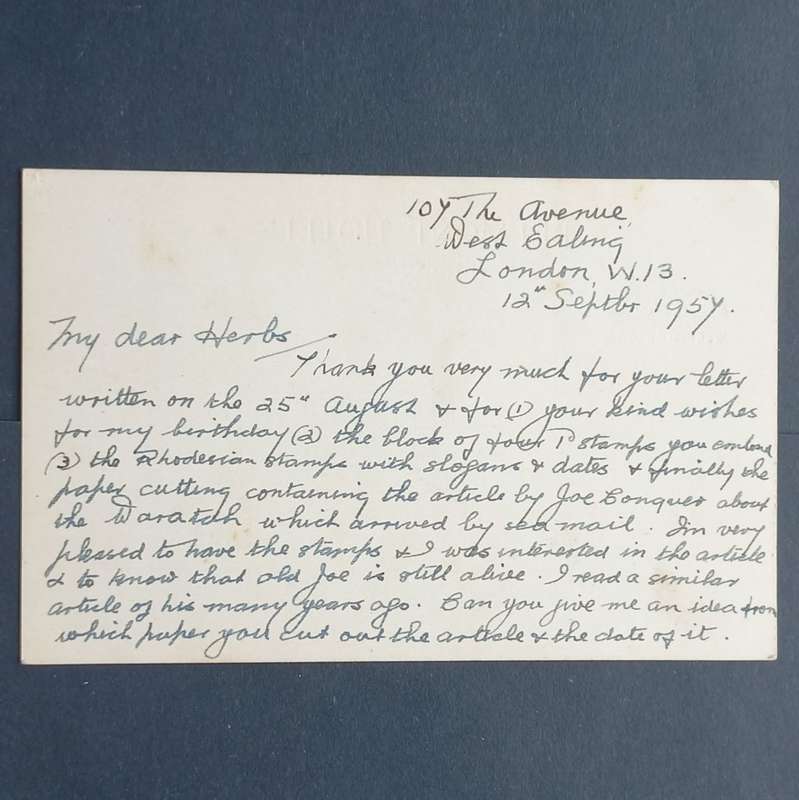 107 The Avenue,
West Ealing
London, W.13.
12th Septbr 1957.
My dear Herbs
Thank you very much for your letter
written on the 25th August & for (1) your kind wishes
for my birthday (2) the block of four 1d stamps you
(3) the Rhodesian stamps with slogans & dates & finally the
paper cutting containing the article by Joe Conquer about
the Waratah which arrived by sea mail. I'm very
pleased to have the stamps & I was interested in the article
& to know that old Joe is still alive. I read a similar
article of his many years ago. Can you give me an idea from
which paper you cut out the article & the date of it.